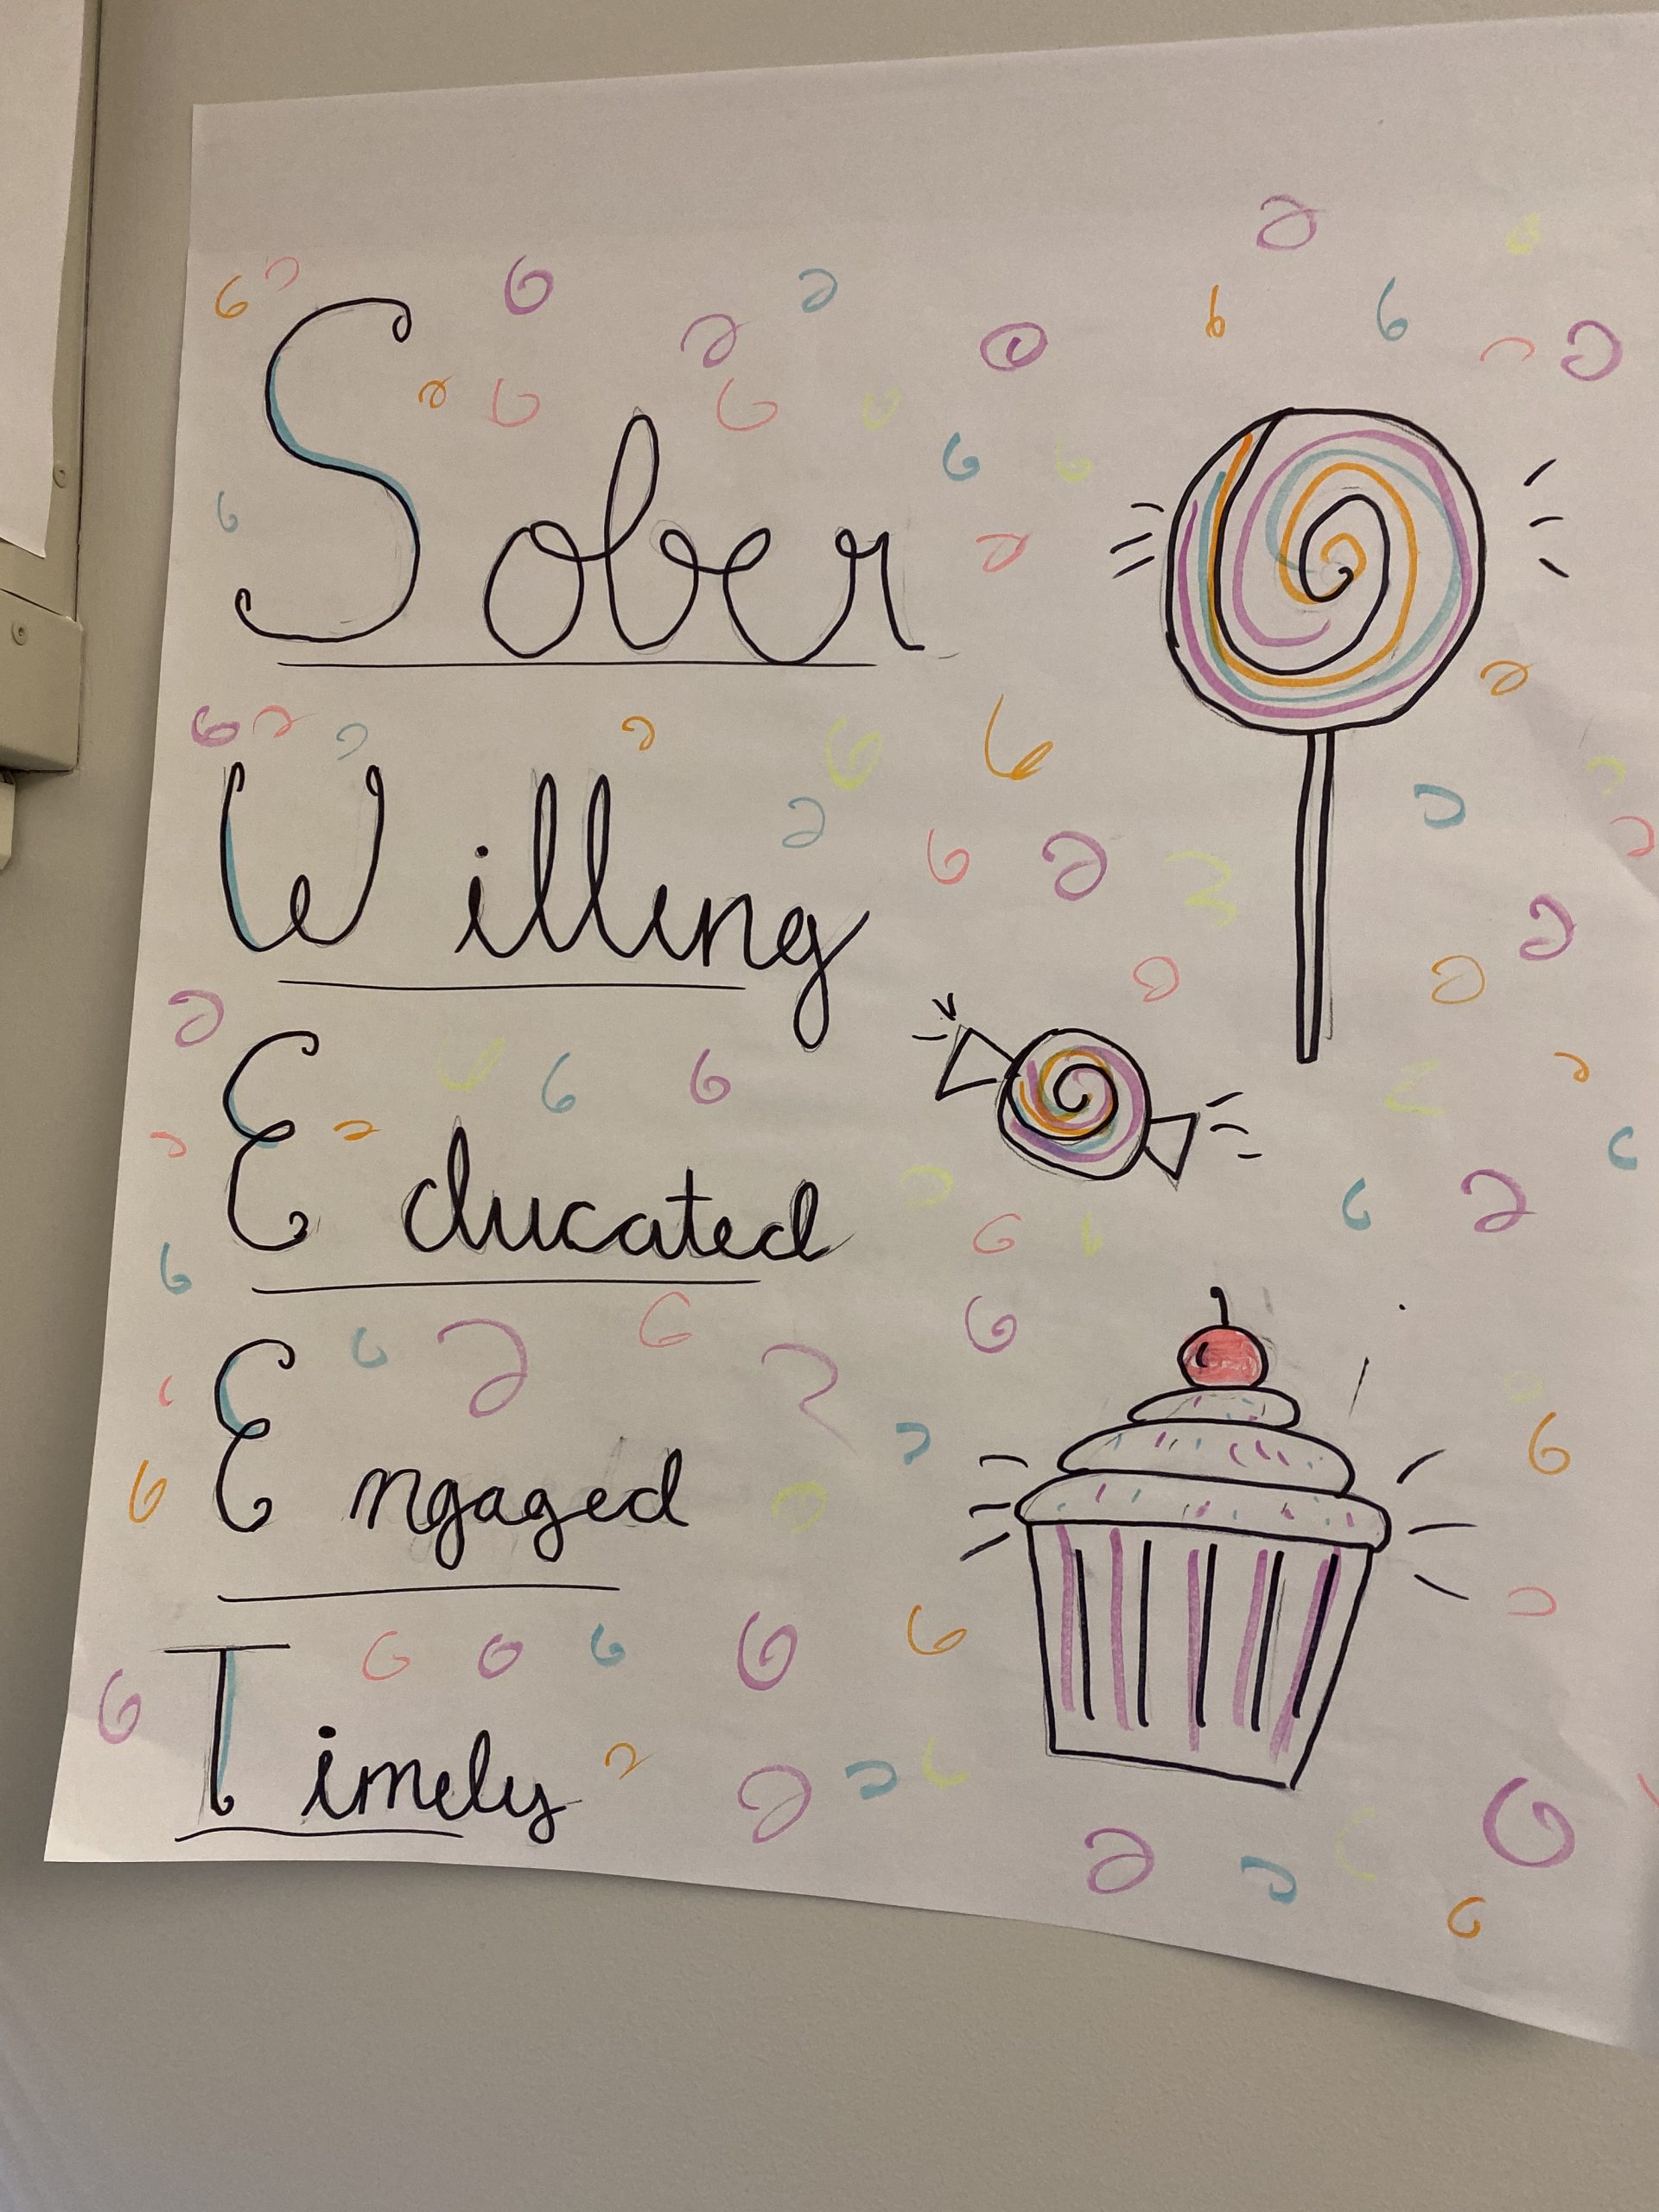 Sober
Willing
Educated
Engaged
Timely